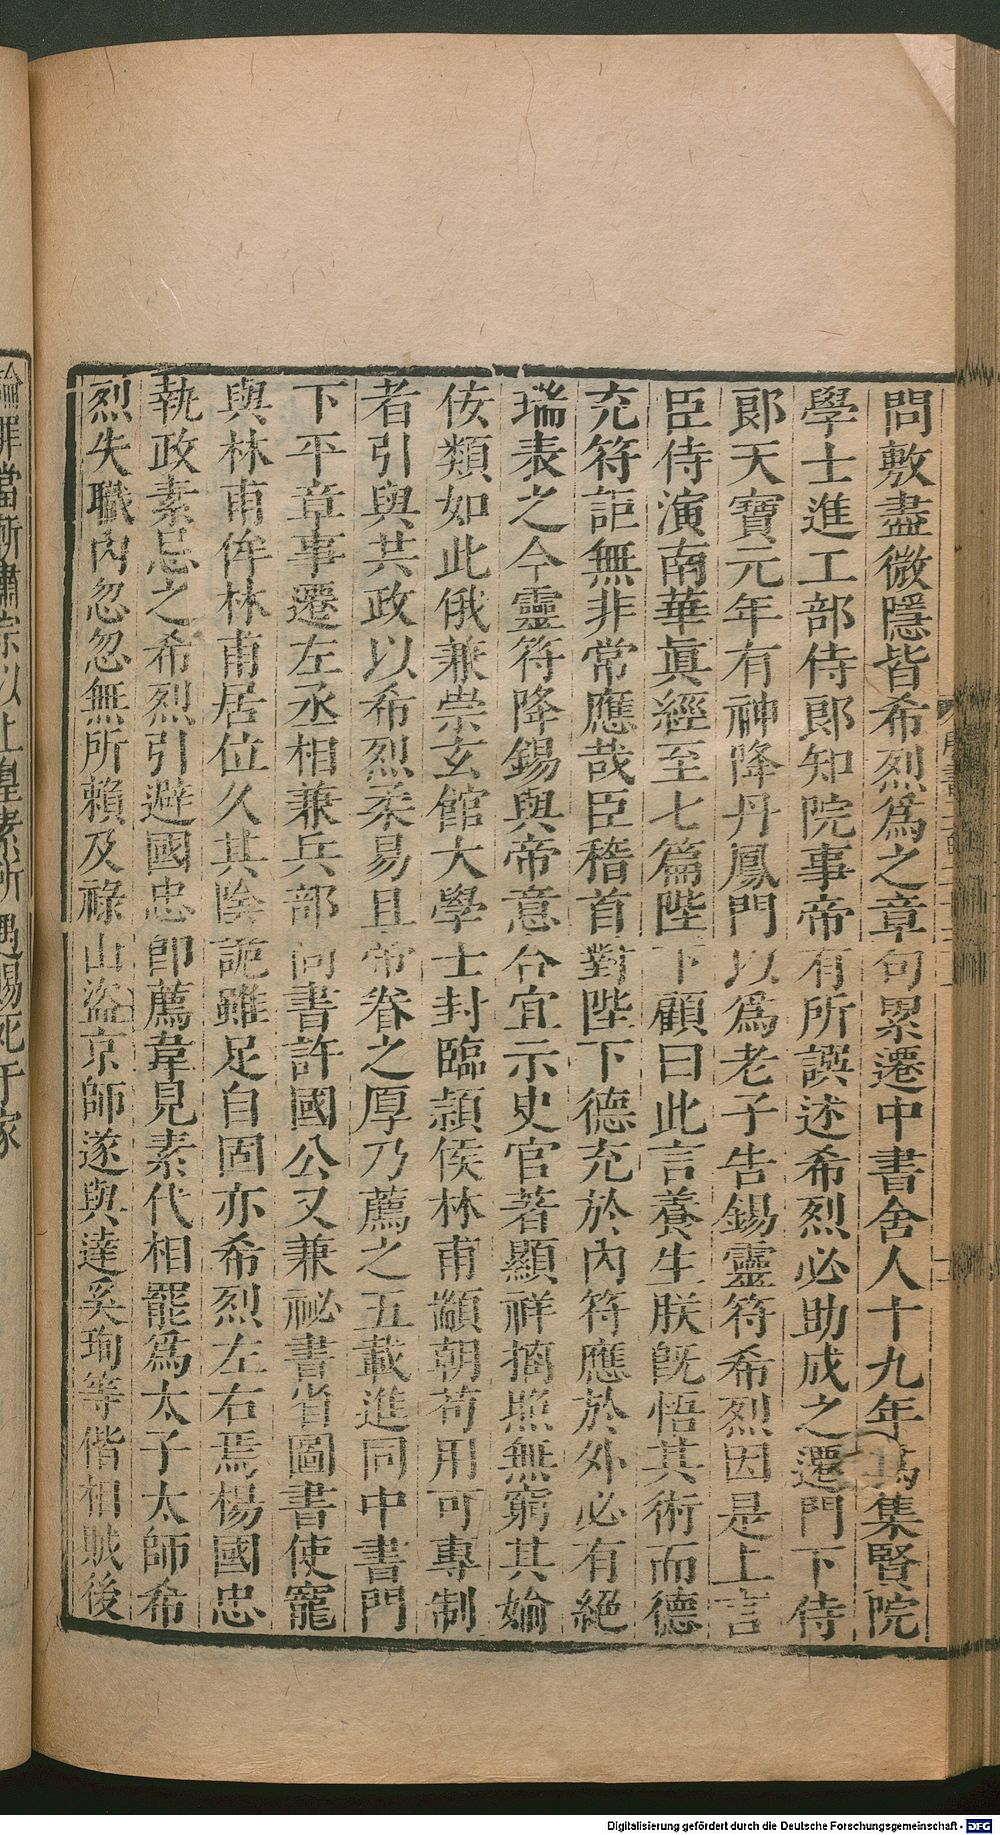 問敷盡微隱皆希烈爲之章句累遷中書舍人十九年爲集賢院
學士進工部侍郎知院事帝有所譔述希烈必助成之遷門下侍
郎天寶元年有神降丹鳳門以爲老子告錫靈符希烈因是上言
臣侍演南華眞經至七篇陛下顧曰此言養生朕既悟其術而德
充符詎無非常應哉臣稽首對陛下德充於內符應於外必有絕
瑞表之今靈符降錫與帝意合宜示史官著顯祥摛照無窮其媮
佞類如此俄兼崇玄館大學士封臨潁侯林甫顓朝苟用可專制
者引與共政以希烈柔易且帝眷之厚乃薦之五載進同中書門
下平章事遷左丞相兼兵部尚書許國公又兼祕書省圖書使寵
與林甫侔林甫居位久其陰詭雖足自固亦希烈左右焉楊國忠
執政素忌之希烈引避國忠即薦韋見素代相罷爲太子太師希
烈失職內忽忽無所賴及祿山盜京師遂與達奚珣等偕相賊後
論罪當斬肅宗以上皇素所遇賜死于家
Digitalisierung gefördert durch die Deutsche Forschungsgemeinschaft - DFG